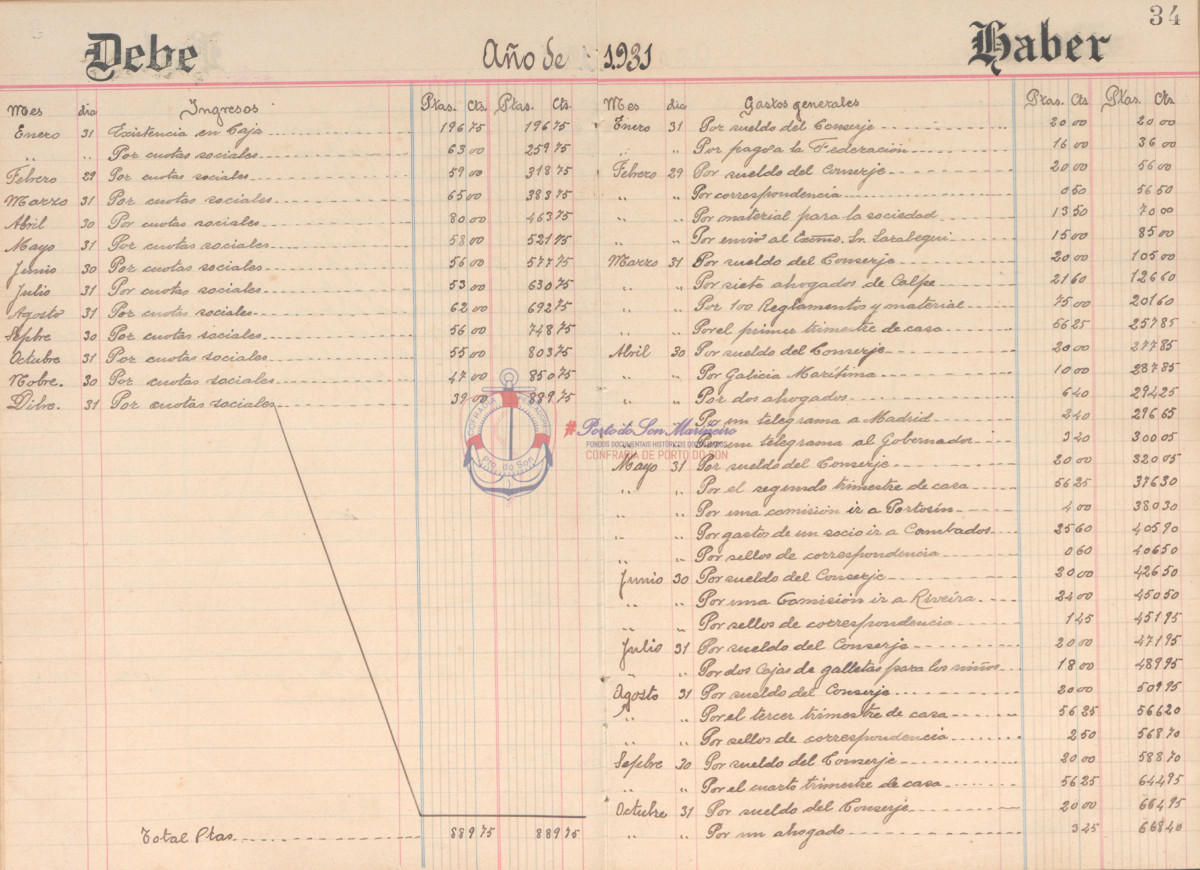 34
Debe Año de 1931 Haber
Mes dia Ingresos Ptas. Cts. Ptas. Cts.
Enero 31 Existencia en Caja 196 75 196 75
" " Por cuotas sociales 63 00 259 75
Febrero 29 Por cuotas sociales 59 00 318 75
Marzo 31 Por cuotas sociales 65 00 383 75
Abril 30 Por cuotas sociales 80 00 463 75
Mayo 31 Por cuotas sociales 58 00 521 75
Junio 30 Por cuotas sociales 56 00 577 75
Julio 31 Por cuotas sociales 53 00 630 75
Agosto 31 Por cuotas sociales 62 00 692 75
Sepbre 30 Por cuotas sociales 56 00 748 75
Octubre 31 Por cuotas sociales 55 00 803 75
Nobre. 30 Por cuotas sociales 47 00 850 75
Dibre. 31 Por cuotas sociales 39 00 889 75
Total Ptas. 889 75 889 75
Mes dia Gastos generales Ptas. Cts Ptas. Cts
Enero 31 Por sueldo del Conserje 20 00 20 00
" " Por pagos a la Federación 16 00 36 00
Febrero 29 Por sueldo del Conserje 20 00 56 00
" " Por correspondencia 0 50 56 50
" " Por material para la sociedad 13 50 70 00
" " Por envio al Exmo. Sr. Sarabegui 15 00 85 00
Marzo 31 Por sueldo del Conserje 20 00 105 00
" " Por siete ahogados de Calpe 21 60 126 60
" " Por 100 Reglamentos y material 75 00 201 60
" " Por el primer trimestre de casa 56 25 257 85
Abril 30 Por sueldo del Conserje 20 00 277 85
" " Por Galicia Marítima 10 00 287 85
" " Por dos ahogados 6 40 294 25
Por un telegrama a Madrid 2 40 296 65
Por un telegrama al Gobernador 3 40 300 05
Mayo 31 Por sueldo del Conserje 20 00 320 05
" " Por el segundo trimestre de casa 56 25 376 30
" " Por una comisión ir a Portosín 4 00 380 30
" " Por gastos de un socio ir a Cambados 25 60 405 90
" " Por sellos de correspondencia 0 60 406 50
Junio 30 Por sueldo del Conserje 20 00 426 50
" " Por una Comisión ir a Riveira 24 00 450 50
" " Por sellos de correspondencia 1 45 451 95
Julio 31 Por sueldo del Conserje 20 00 471 95
" " Por dos Cajas de galletas para los niños 18 00 489 95
Agosto 31 Por sueldo del Conserje 20 00 509 95
" " Por el tercer trimestre de casa 56 25 566 20
" " Por sellos de correspondencia 2 50 568 70
Sepbre 30 Por sueldo del Conserje 20 00 588 70
" " Por el cuarto trimestre de casa 56 25 644 95
Octubre 31 Por sueldo del Conserje 20 00 664 95
" " Por un ahogado 3 45 668 40
#Porto do Son Mariñeiro
FONDOS DOCUMENTAIS HISTÓRICOS
CONFRARÍA DE PORTO DO SON
COFRADIA
Pto. do Son